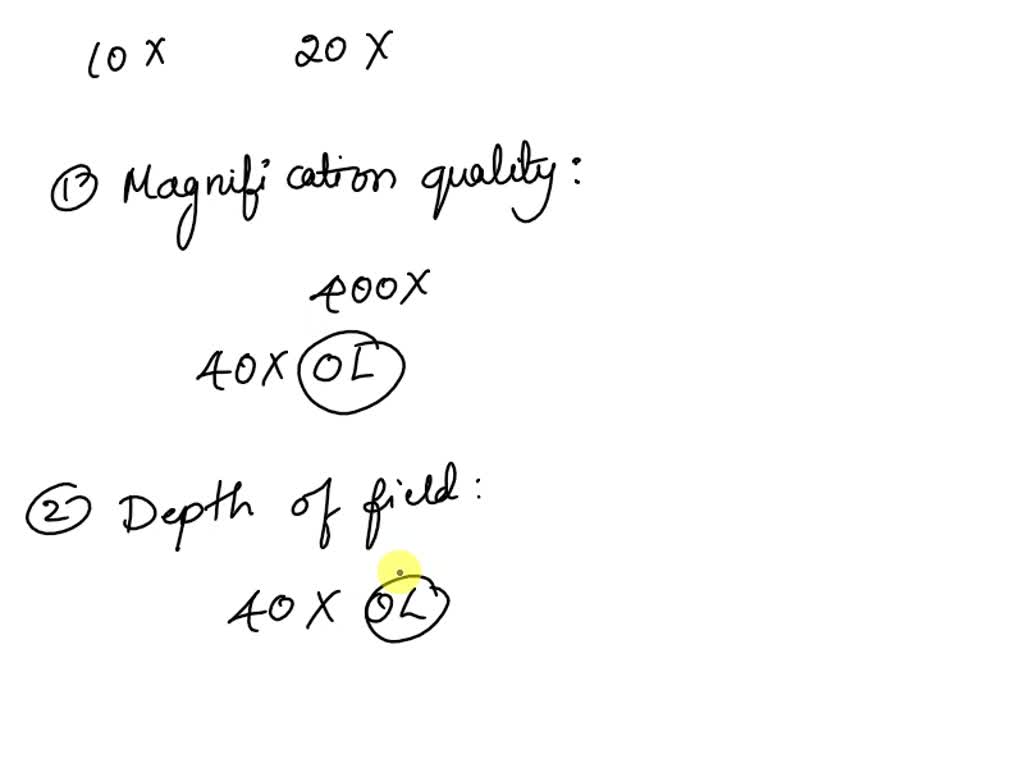 10 X 20 X
① Magnification quality:
400X
40X OL
② Depth of field:
40 X OL